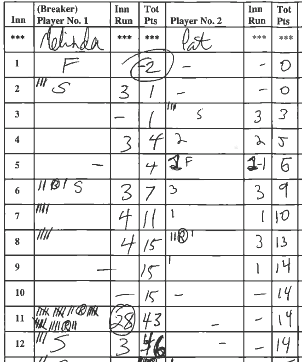 Inn (Breaker) Player No. 1 Inn Run Tot Pts Player No. 2 Inn Run Tot Pts
*** Melinda *** *** Pat *** ***
1 F -2 - - 0
2 III S 3 1 - - 0
3 - 1 III S 3 3
4 3 4 2 2 5
5 - 4 F 2-1 6
6 II®I S 3 7 3 3 9
7 IIII 4 11 1 1 10
8 IIII 4 15 II®I 3 13
9 - 15 1 1 14
10 - 15 - - 14
11 28 43 - - 14
12 III S 3 46 - - 14